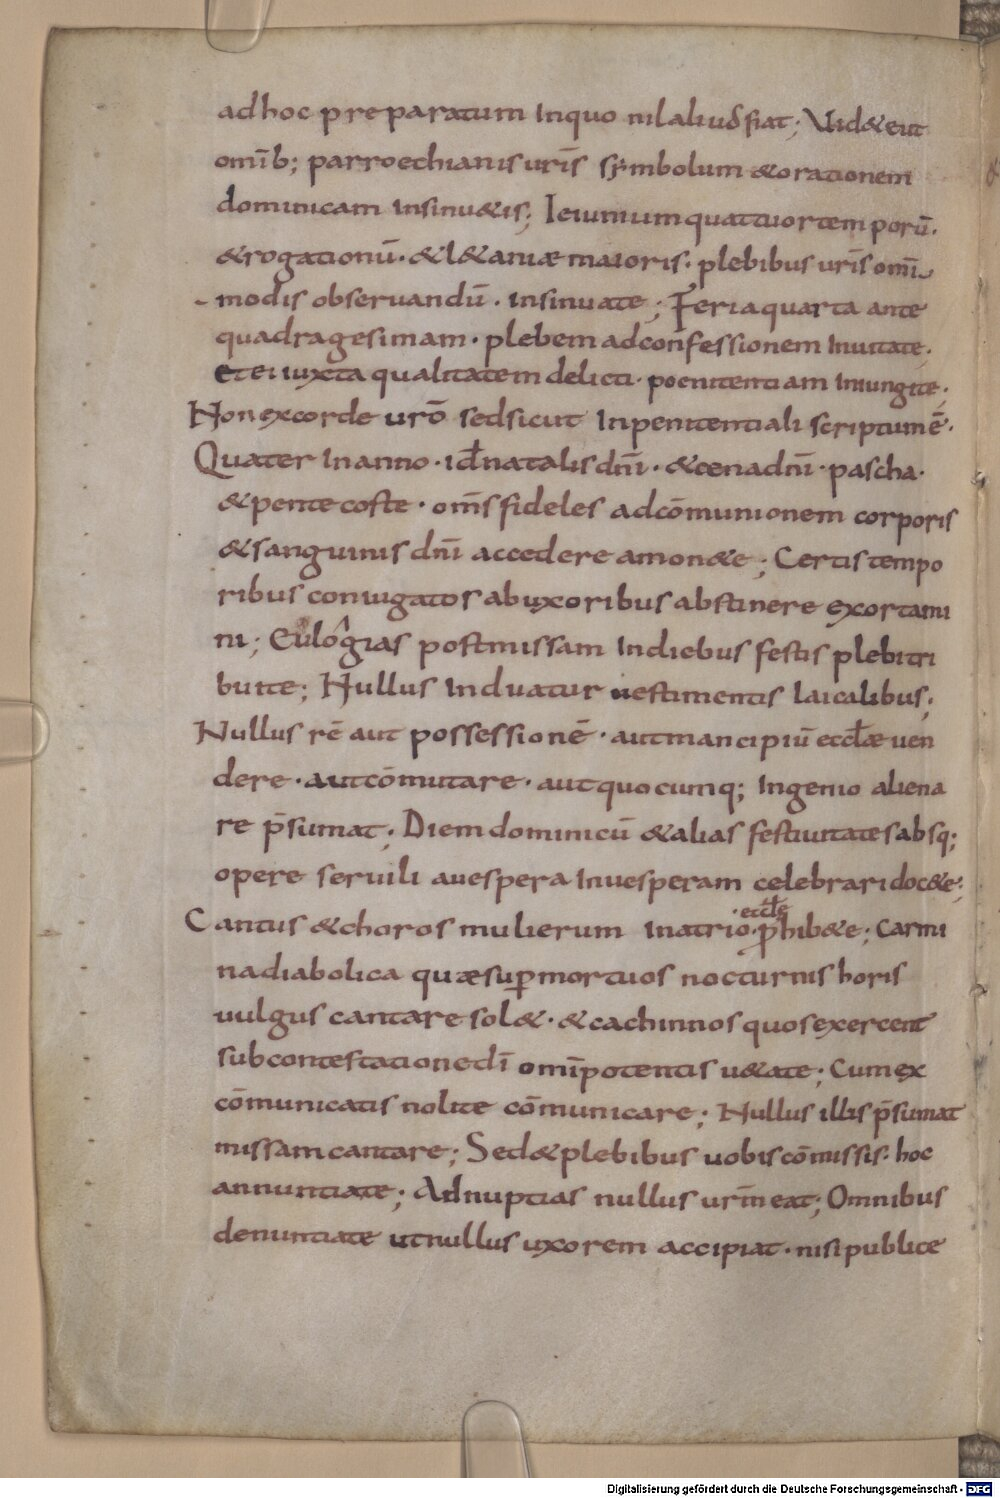 ad hoc preparatum In quo nil aliud fiat; Vid& e ut
omīb; parroechianis urīs sȳmbolum & orationem
dominicam insinu&is; Ieiunium quattuor temporū.
& rogationū. & l&aniæ maioris. plebibus urīs omī
modis obseruandū. insinuate; Feria quarta ante
quadragesimam. plebem ad confessionem inuitate.
et ei iuxta qualitatem delicti. poenitentiam iniungite.
Non ex corde urō sed sicut In penitentiali scriptum ē.
Quater In anno. id̄ natalis dn̄i. & cena dn̄i. pascha.
& pentecoste. om̄s fideles ad cōmunionem corporis
& sanguinis dn̄i accedere amon&e; Certis tempo
ribus coniugatos ab uxoribus abstinere exortami
ni; Eulogias post missam In diebus festis plebi tri
buite; Nullus Induatur uestimentis laicalibus;
Nullus rē aut possessionē. aut mancipiū eccłæ uen
dere. aut cōmutare. aut quocumq; Ingenio aliena
re p̄sumat; Diem dominicū & alias festiuitates absq;
opere seruili a uespera In uesperam celebrari doc&e;
eccłe
Cantus & choros mulierum In atrio. ꝓhib&e; Carmi
na diabolica quæ suꝑ mortuos nocturnis horis
uulgus cantare sol&. & cachinnos quos exercent
sub contestatione dī omīpotentis u&ate; Cum ex
cōmunicatis nolite cōmunicare; Nullus illis p̄sumat
missam cantare; Sed & plebibus uobis cōmissis. hoc
annuntiate; Ad nuptias nullus urm̄ eat; Omnibus
denuntiate ut nullus uxorem accipiat. nisi publice
Digitalisierung gefördert durch die Deutsche Forschungsgemeinschaft - DFG